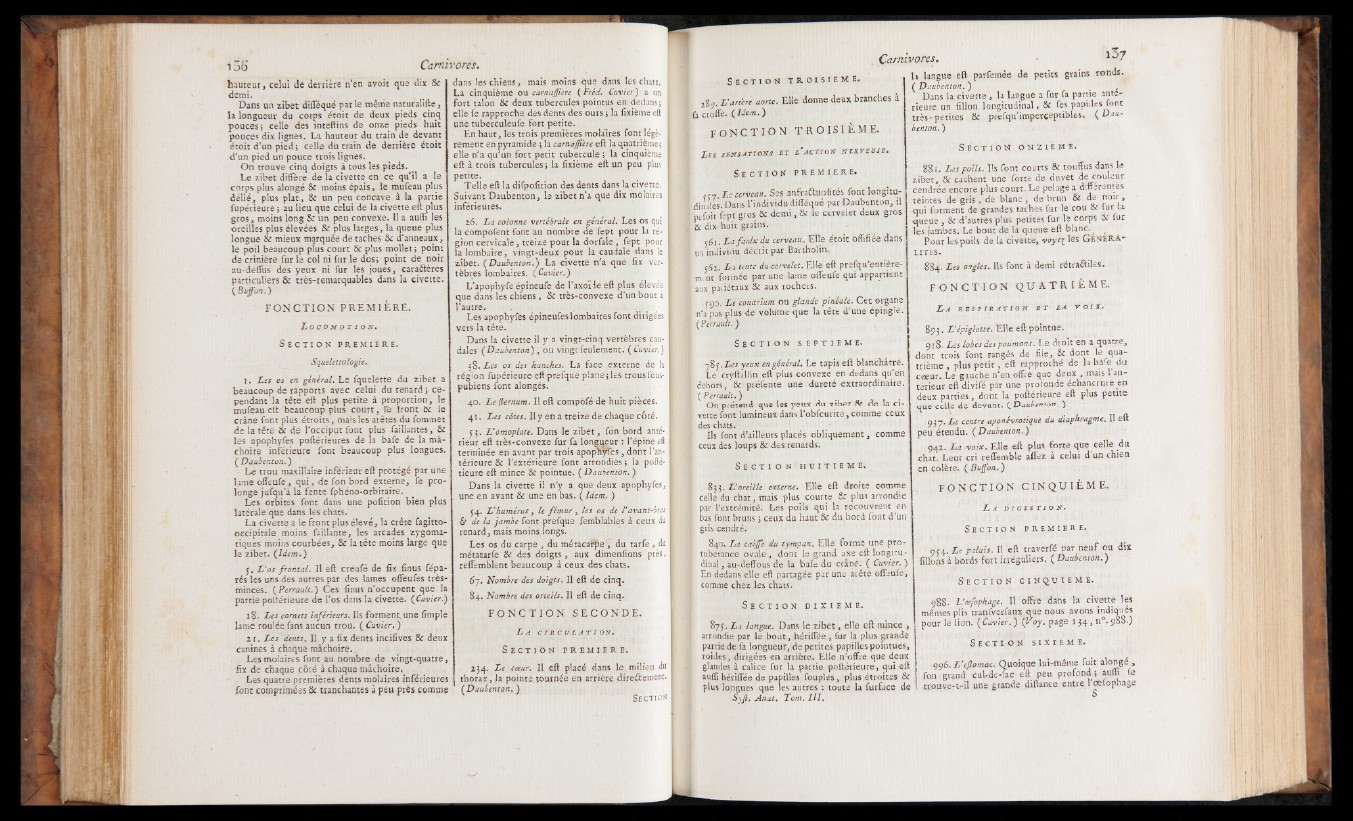 136
Carnivores.
hauteur, celui de derrière n'en avoit que dix &
demi.
Dans un zibet disséqué par le même naturaliste,
la longueur du corps étoit de deux pieds cinq
pouces; celle des intestins de onze pieds huit
pouces dix lignes. La hauteur du train de devant
étoit d'un pied; celle du train de derrière étoit
d'un pied un pouce trois lignes.
On trouve cinq doigts à tous les pieds.
Le zibet diffère de la civette en ce qu'il a le
corps plus alongé & moins épais, le museau plus
délié, plus plat, & un peu concave à la partie
supérieure; au lieu que celui de la civette est plus
gros, moins long & un peu convexe. Il a aussi les
oreilles plus élevées & plus larges, la queue plus
longue & mieux marquée de taches & d'anneaux,
le poil beaucoup plus court & plus mollet; point
de crinière sur le col ni sur le dos; point de noir
au-dessus des yeux ni sur les joues, caractères
particuliers & très-remarquables dans la civette.
(Buffon.)
FONCTION PREMIÈRE.
LOCOMOTION.
SECTION PREMIERE.
Squelettologie.
1. Les os en général. Le squelette du zibet a
beaucoup de rapports avec celui du renard; ce-
pendant la tête est plus petite à proportion, le
museau est beaucoup plus court, le front & le
crâne sont plus étroits, mais les arêtes du sommet
de la tête & de l'occiput sont plus saillantes, &
les apophyses postérieures de la base de la mâ-
choire inférieure sont beaucoup plus longues.
(Daubenton.)
Le trou maxillaire inférieur est protégé par une
lame osseuse, qui, de son bord externe, se pro-
longe jusqu'à la fente sphéno-orbitaire.
Les orbites sont dans une position bien plus
latérale que dans les chats.
La civette a le front plus élevé, la crête sagitto-
occipitale moins saillante, les arcades zygoma-
tiques moins courbées, & la tête moins large que
le zibet. (Idem.)
5. L'os frontal. Il est creusé de six sinus sépa-
rés les uns des autres par des lames osseuses très-
minces. (Perrault.) Ces sinus n'occupent que la
partie postérieure de l'os dans la civette. (Cuvier.)
18. Les cornets inférieurs. Ils forment une simple
lame roulée sans aucun trou. (Cuvier.)
21. Les dents. Il y a six dents incisives & deux
canines à chaque mâchoire.
Les molaires sont au nombre de vingt-quatre,
six de chaque côté à chaque mâchoire.
Les quatre premières dents molaires inférieures
sont comprimées & tranchantes à peu près comme
dans les chiens, mais moins que dans les chats.
La cinquième ou carnassière (Fréd. Cuvier) a un
fort talon & deux tubercules pointus en dedans;
elle se rapproche des dents des ours; la sixième est
une tuberculeuse fort petite.
En haut, les trois premières molaires sont légè-
rement en pyramide; la carnassière est la quatrième;
elle n'a qu'un fort petit tubercule; la cinquième
est à trois tubercules; la sixième est un peu plus
petite.
Telle est la disposition des dents dans la civette.
Suivant Daubenton, le zibet n'a que dix molaires
inférieures.
26. La colonne vertébrale en général. Les os qui
la composent sont au nombre de sept pour la ré-
gion cervicale, treize pour la dorsale, sept pour
la lombaire, vingt-deux pour la caudale dans le
zibet. (Daubenton.) La civette n'a que six ver-
tèbres lombaires. (Cuvier.)
L'apophyse épineuse de l'axoïde est plus élevée
que dans les chiens, & très-convexe d'un bout à
l'autre.
Les apophyses épineuses lombaires sont dirigées
vers la tête.
Dans la civette il y a vingt-cinq vertèbres cau-
dales (Daubenton), ou vingt seulement. (Cuvier.)
38. Les os des hanches. La face externe de la
région supérieure est presque plane; les trous sous-
pubiens sont alongés.
40. Le sternum. Il est composé de huit pièces.
41. Les côtes. Il y en a treize de chaque côté.
53. L'omoplate. Dans le zibet, son bord anté-
rieur est très-convexe sur sa longueur: l'épine est
terminée en avant par trois apophyses, dont l'an-
térieure & l'extérieure sont arrondies; la posté-
rieure est mince & pointue. (Daubenton.)
Dans la civette il n'y a que deux apophyses,
une en avant & une en bas. (Idem.)
54. L'humérus, le fémur, les os de l'avant-bras
& de la jambe sont presque semblables à ceux du
renard, mais moins longs.
Les os du carpe, du métacarpe, du tarse, du
métatarse & des doigts, aux dimensions près,
ressemblent beaucoup à ceux des chats.
67. Nombre des doigts. Il est de cinq.
84. Nombre des orteils. Il est de cinq.
FONCTION SECONDE.
LA CIRCULATION.
SECTION PREMIERE.
234. Le cœur. Il est placé dans le milieu du
thorax, la pointe tournée en arrière directement.
(Daubenton.)
SECTION
Carnivores.
137
SECTION TROISIEME.
289. L'artère aorte. Elle donne deux branches à
sa crosse. (Idem.)
FONCTION TROISIÈME.
LES SENSATIONS ET L'ACTION NERVEUSE.
SECTION PREMIERE.
557. Le cerveau. Ses anfractuosités sont longitu-
dinales. Dans l'individu disséqué par Daubenton, il
pesoit sept gros & demi, & le cervelet deux gros
& dix huit grains.
561. La faulx du cerveau. Elle étoit ossifiée dans
un individu décrit par Bartholin.
562. La tente du cervelet. Elle est presqu'entière-
ment formée par une lame osseuse qui appartient
aux pariétaux & aux rochers.
590. Le conarium ou glande pinéale. Cet organe
n'a pas plus de volume que la tête d'une épingle.
(Perrault.)
SECTION SEPTIEME.
785. Les yeux en général. Le tapis est blanchâtre.
Le crystallin est plus convexe en dedans qu'en
dehors, & présente une dureté extraordinaire.
(Perrault.)
On prétend que les yeux du zibet & de la ci-
vette sont lumineux dans l'obscurité, comme ceux
des chats.
Ils sont d'ailleurs placés obliquement, comme
ceux des loups & des renards.
SECTION HUITIEME.
833. L'oreille externe. Elle est droite comme
celle du chat, mais plus courte & plus arrondie
par l'extrémité. Les poils qui la recouvrent en
bas sont bruns; ceux du haut & du bord sont d'un
gris cendré.
840. La caisse du tympan. Elle forme une pro-
tubérance ovale, dont le grand axe est longitu-
dinal, au-dessous de la base du crâne. (Cuvier.)
En dedans elle est partagée par une arête osseuse,
comme chez les chats.
SECTION DIXIEME.
875. La langue. Dans le zibet, elle est mince,
arrondie par le bout, hérissée, sur la plus grande
partie de sa longueur, de petites papilles pointues,
roides, dirigées en arrière. Elle n'offre que deux
glandes à calice sur la partie postérieure, qui est
aussi hérissée de papilles souples, plus étroites &
plus longues que les autres: toute la surface de
Syst. Anat. Tom. III.
la langue est parsemée de petits grains ronds.
(Daubenton.)
Dans la civette, la langue a sur sa partie anté-
rieure un sillon longitudinal, & ses papilles sont
très-petites & presqu'imperceptibles. (Dau-
benton.)
SECTION ONZIEME.
881. Les poils. Ils sont courts & touffus dans le
zibet, & cachent une sorte de duvet de couleur
cendrée encore plus court. Le pelage a différentes
teintes de gris, de blanc, de brun & de noir,
qui forment de grandes taches sur le cou & sur la
queue, & d'autres plus petites sur le corps & sur
les jambes. Le bout de la queue est blanc.
Pour les poils de la civette, voyez les GÉNÉRA-
LITÉS.
884. Les ongles. Ils sont à demi rétractiles.
FONCTION QUATRIÈME.
LA RESPIRATION ET LA VOIX.
893. L'épiglotte. Elle est pointue.
918. Les lobes des poumons. Le droit en a quatre,
dont trois sont rangés de file, & dont le qua-
trième, plus petit, est rapproché de la base du
cœur. Le gauche n'en offre que deux, mais l'an-
térieur est divisé par une profonde échancrure en
deux parties, dont la postérieure est plus petite
que celle de devant. (Daubenton.)
937. Le centre aponévrotique du diaphragme. Il est
peu étendu. (Daubenton.)
942. La voix. Elle est plus forte que celle du
chat. Leur cri ressemble assez à celui d'un chien
en colère. (Buffon.)
FONCTION CINQUIÈME.
LA DIGESTION.
SECTION PREMIERE.
954. Le palais. Il est traversé par neuf ou dix
sillons à bords fort irréguliers. (Daubenton.)
SECTION CINQUIEME.
988. L'œsophage. Il offre dans la civette les
mêmes plis transversaux que nous avons indiqués
pour le lion. (Cuvier.) (Voy. page 134, n°. 988.)
SECTION SIXIEME.
996. L'estomac. Quoique lui-même soit alongé,
son grand cul-de-sac est peu profond; aussi se
trouve-t-il une grande distance entre l'œsophage
S